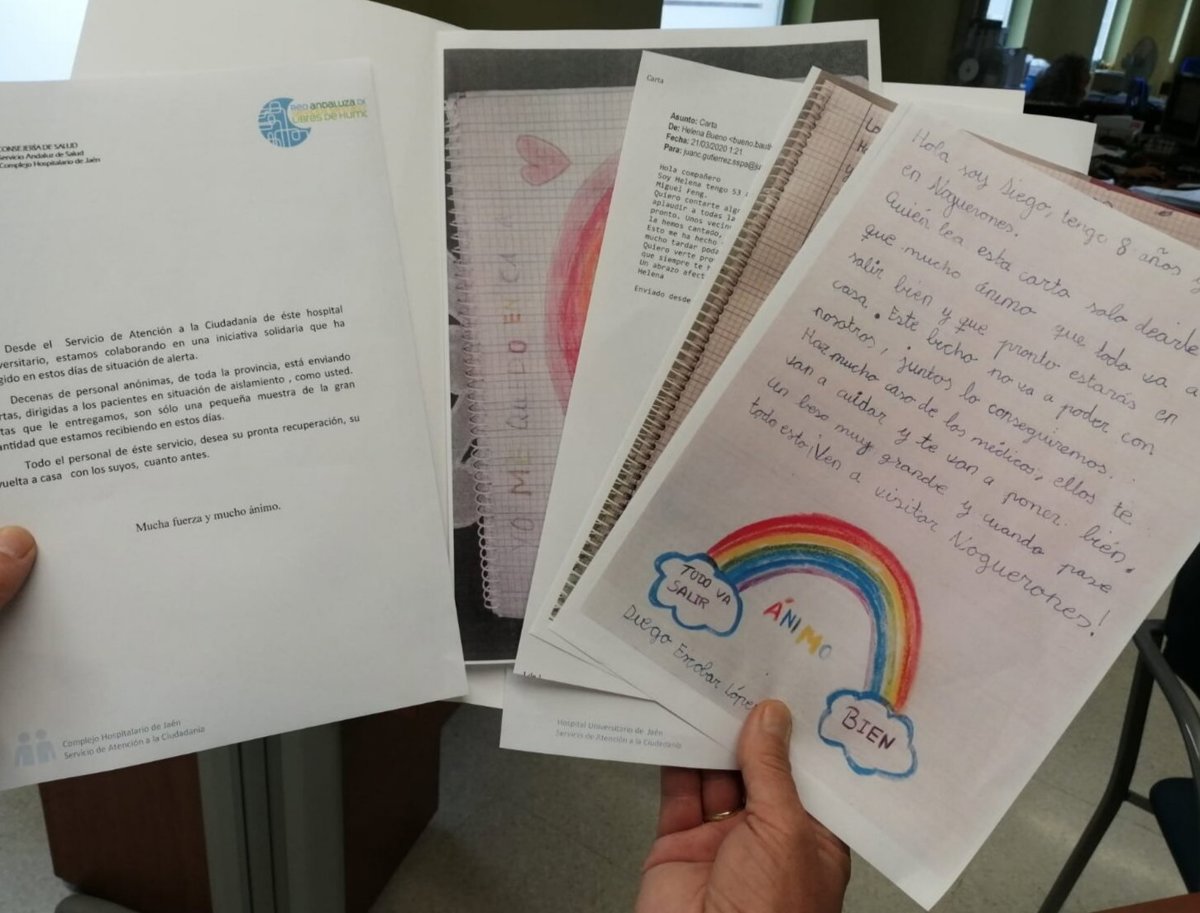 CONSEJERÍA DE SALUD
Servicio Andaluz de Salud
Complejo Hospitalario de Jaén
RED ANDALUZA DE
LIBRES DE HUMO
Desde el Servicio de Atención a la Ciudadanía de éste hospital
versitario, estamos colaborando en una iniciativa solidaria que ha
gido en estos días de situación de alerta.
Decenas de personal anónimas, de toda la provincia, está enviando
rtas, dirigidas a los pacientes en situación de aislamiento , como usted.
tas que le entregamos, son sólo una pequeña muestra de la gran
antidad que estamos recibiendo en estos días.
Todo el personal de éste servicio, desea su pronta recuperación, su
vuelta a casa con los suyos, cuanto antes.
Mucha fuerza y mucho ánimo.
Complejo Hospitalario de Jaén
Servicio de Atención a la Ciudadanía
YO ME QUEDO EN CA
Carta
Asunto: Carta
De: Helena Bueno <bueno.baut
Fecha: 21/03/2020 1:21
Para: juanc.gutierrez.sspa@ju
Hola compañero
Soy Helena tengo 53
Miguel Feng.
Quiero contarte alg
aplaudir a todas la
pronto. Unos vecin
le hemos cantado,
Esto me ha hecho
mucho tardar poda
Quiero verte pro
que siempre te h
Un abrazo afect
Helena
Enviado desde
Hospital Universitario de Jaén
Servicio de Atención a la Ciudadanía
Hola soy Diego, tengo 8 años y
en Noguerones.
Quién lea esta carta solo decirle
que mucho ánimo que todo va a
salir bien y que pronto estarás en
casa. Este bicho no va a poder con
nosotros, juntos lo conseguiremos.
Haz mucho caso de los médicos, ellos te
van a cuidar y te van a poner bien.
Un beso muy grande y cuando pase
todo esto ¡Ven a visitar Noguerones!
TODO VA
SALIR
ÁNIMO
BIEN
Diego Escobar Lópe